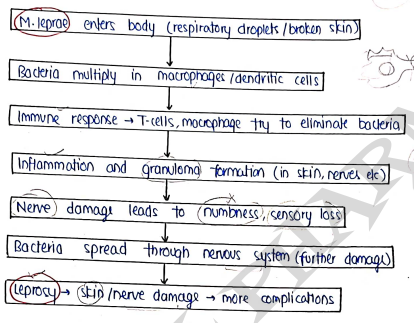 M. leprae enters body (respiratory droplets/broken skin)
Bacteria multiply in macrophages/dendritic cells
Immune response → T-cells, macrophage try to eliminate bacteria
Inflammation and granuloma formation (in skin, nerves etc)
Nerve damage leads to numbness, sensory loss
Bacteria spread through nervous system (further damage)
Leprosy → skin/nerve damage → more complications
PHAR